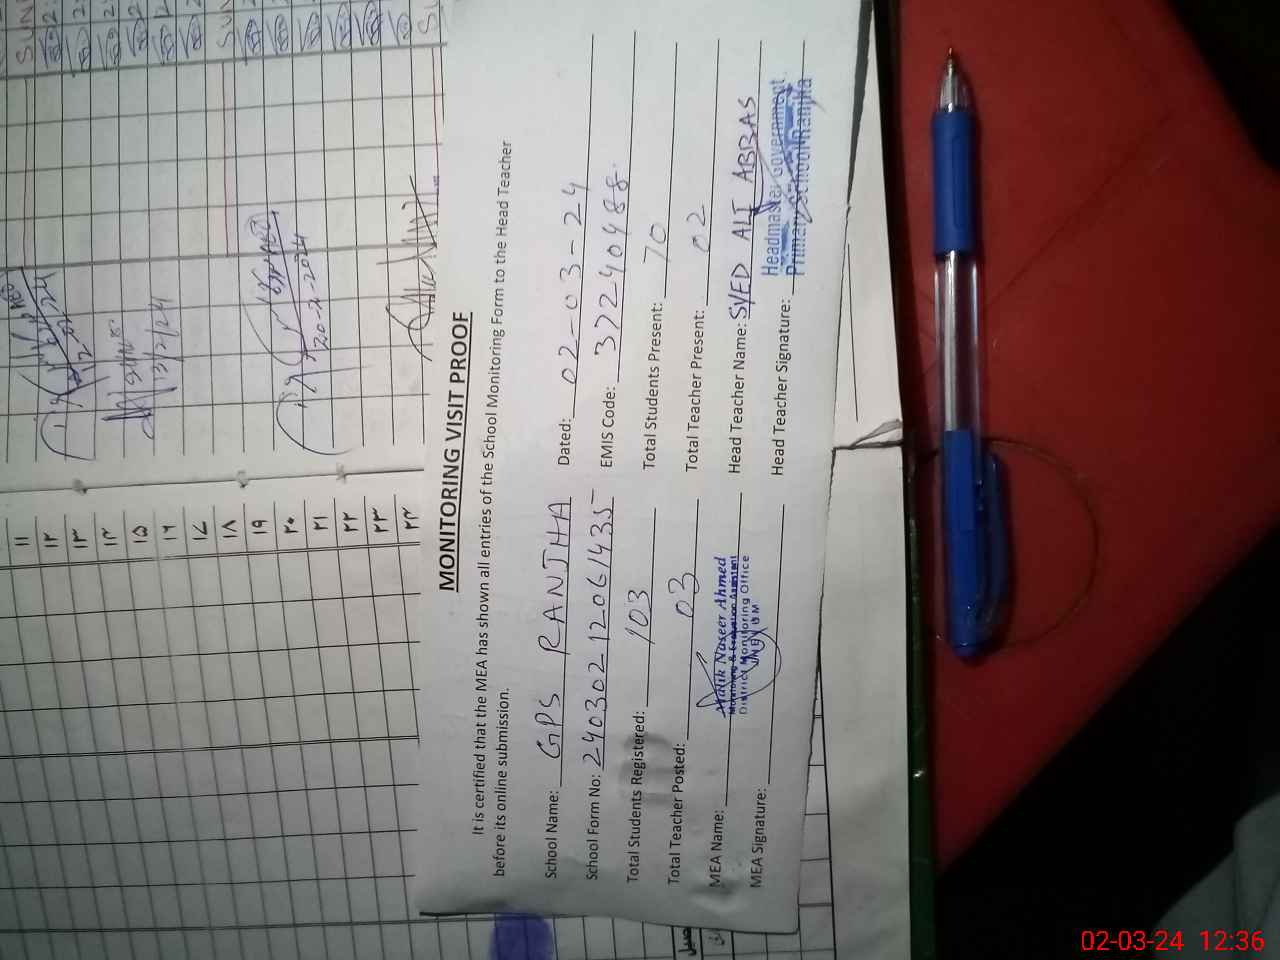 MONITORING VISIT PROOF
It is certified that the MEA has shown all entries of the School Monitoring Form to the Head Teacher
before its online submission.
School Name: GPS RANJHA Dated: 02-03-24
School Form No: 24030212061435 EMIS Code: 37240488
Total Students Registered: 103 Total Students Present: 70
Total Teacher Posted: 03 Total Teacher Present: 02
MEA Name: Malik Naseer Ahmed Head Teacher Name: SYED ALI ABBAS
Monitoring & Evaluation Assistant
District Monitoring Office
MEA Signature: Head Teacher Signature:
Headmaster Government
Primary School Ranjha
۱۱
۱۲
۱۳
۱۴
۱۵
۱۶
۱۷
۱۸
۱۹
۲۰
۲۱
۲۲
۲۳
۲۴
13/2/24
20-2-2024
02-03-24 12:36